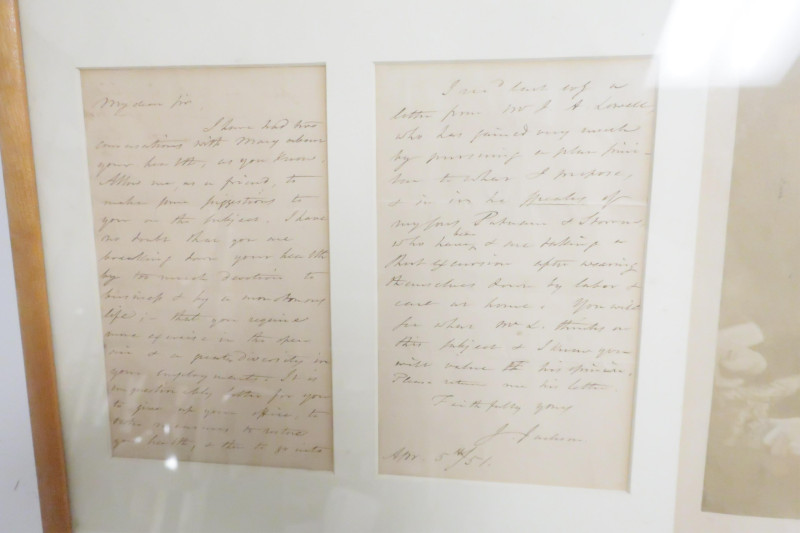 My dear Sir.
I have had two
conversations with Mary about
your health, as you know.
Allow me, as a friend, to
make some suggestions to
you on the subject. I have
no doubt that you are
breaking down your health
by too much devotion to
business & by a monotonous
life; that you require
more exercise in the open
air & a greater diversity in
your employments. It is
unquestionably better for you
to give up your office, to
exercise to restore
health, to go into
I send a
letter from Mr J. A. Lowell,
who has gained very much
by pursuing a plan simi-
lar to what I propose,
& in it he speaks of
my sons Putnam &
who have been & are taking a
short excursion after wearing
themselves down by labor &
care at home. You will
see what Mr L. thinks on
this subject & I know you
will value his opinion.
Please return me his letter
Faithfully yours
J Jackson
Apr. 5th/51.